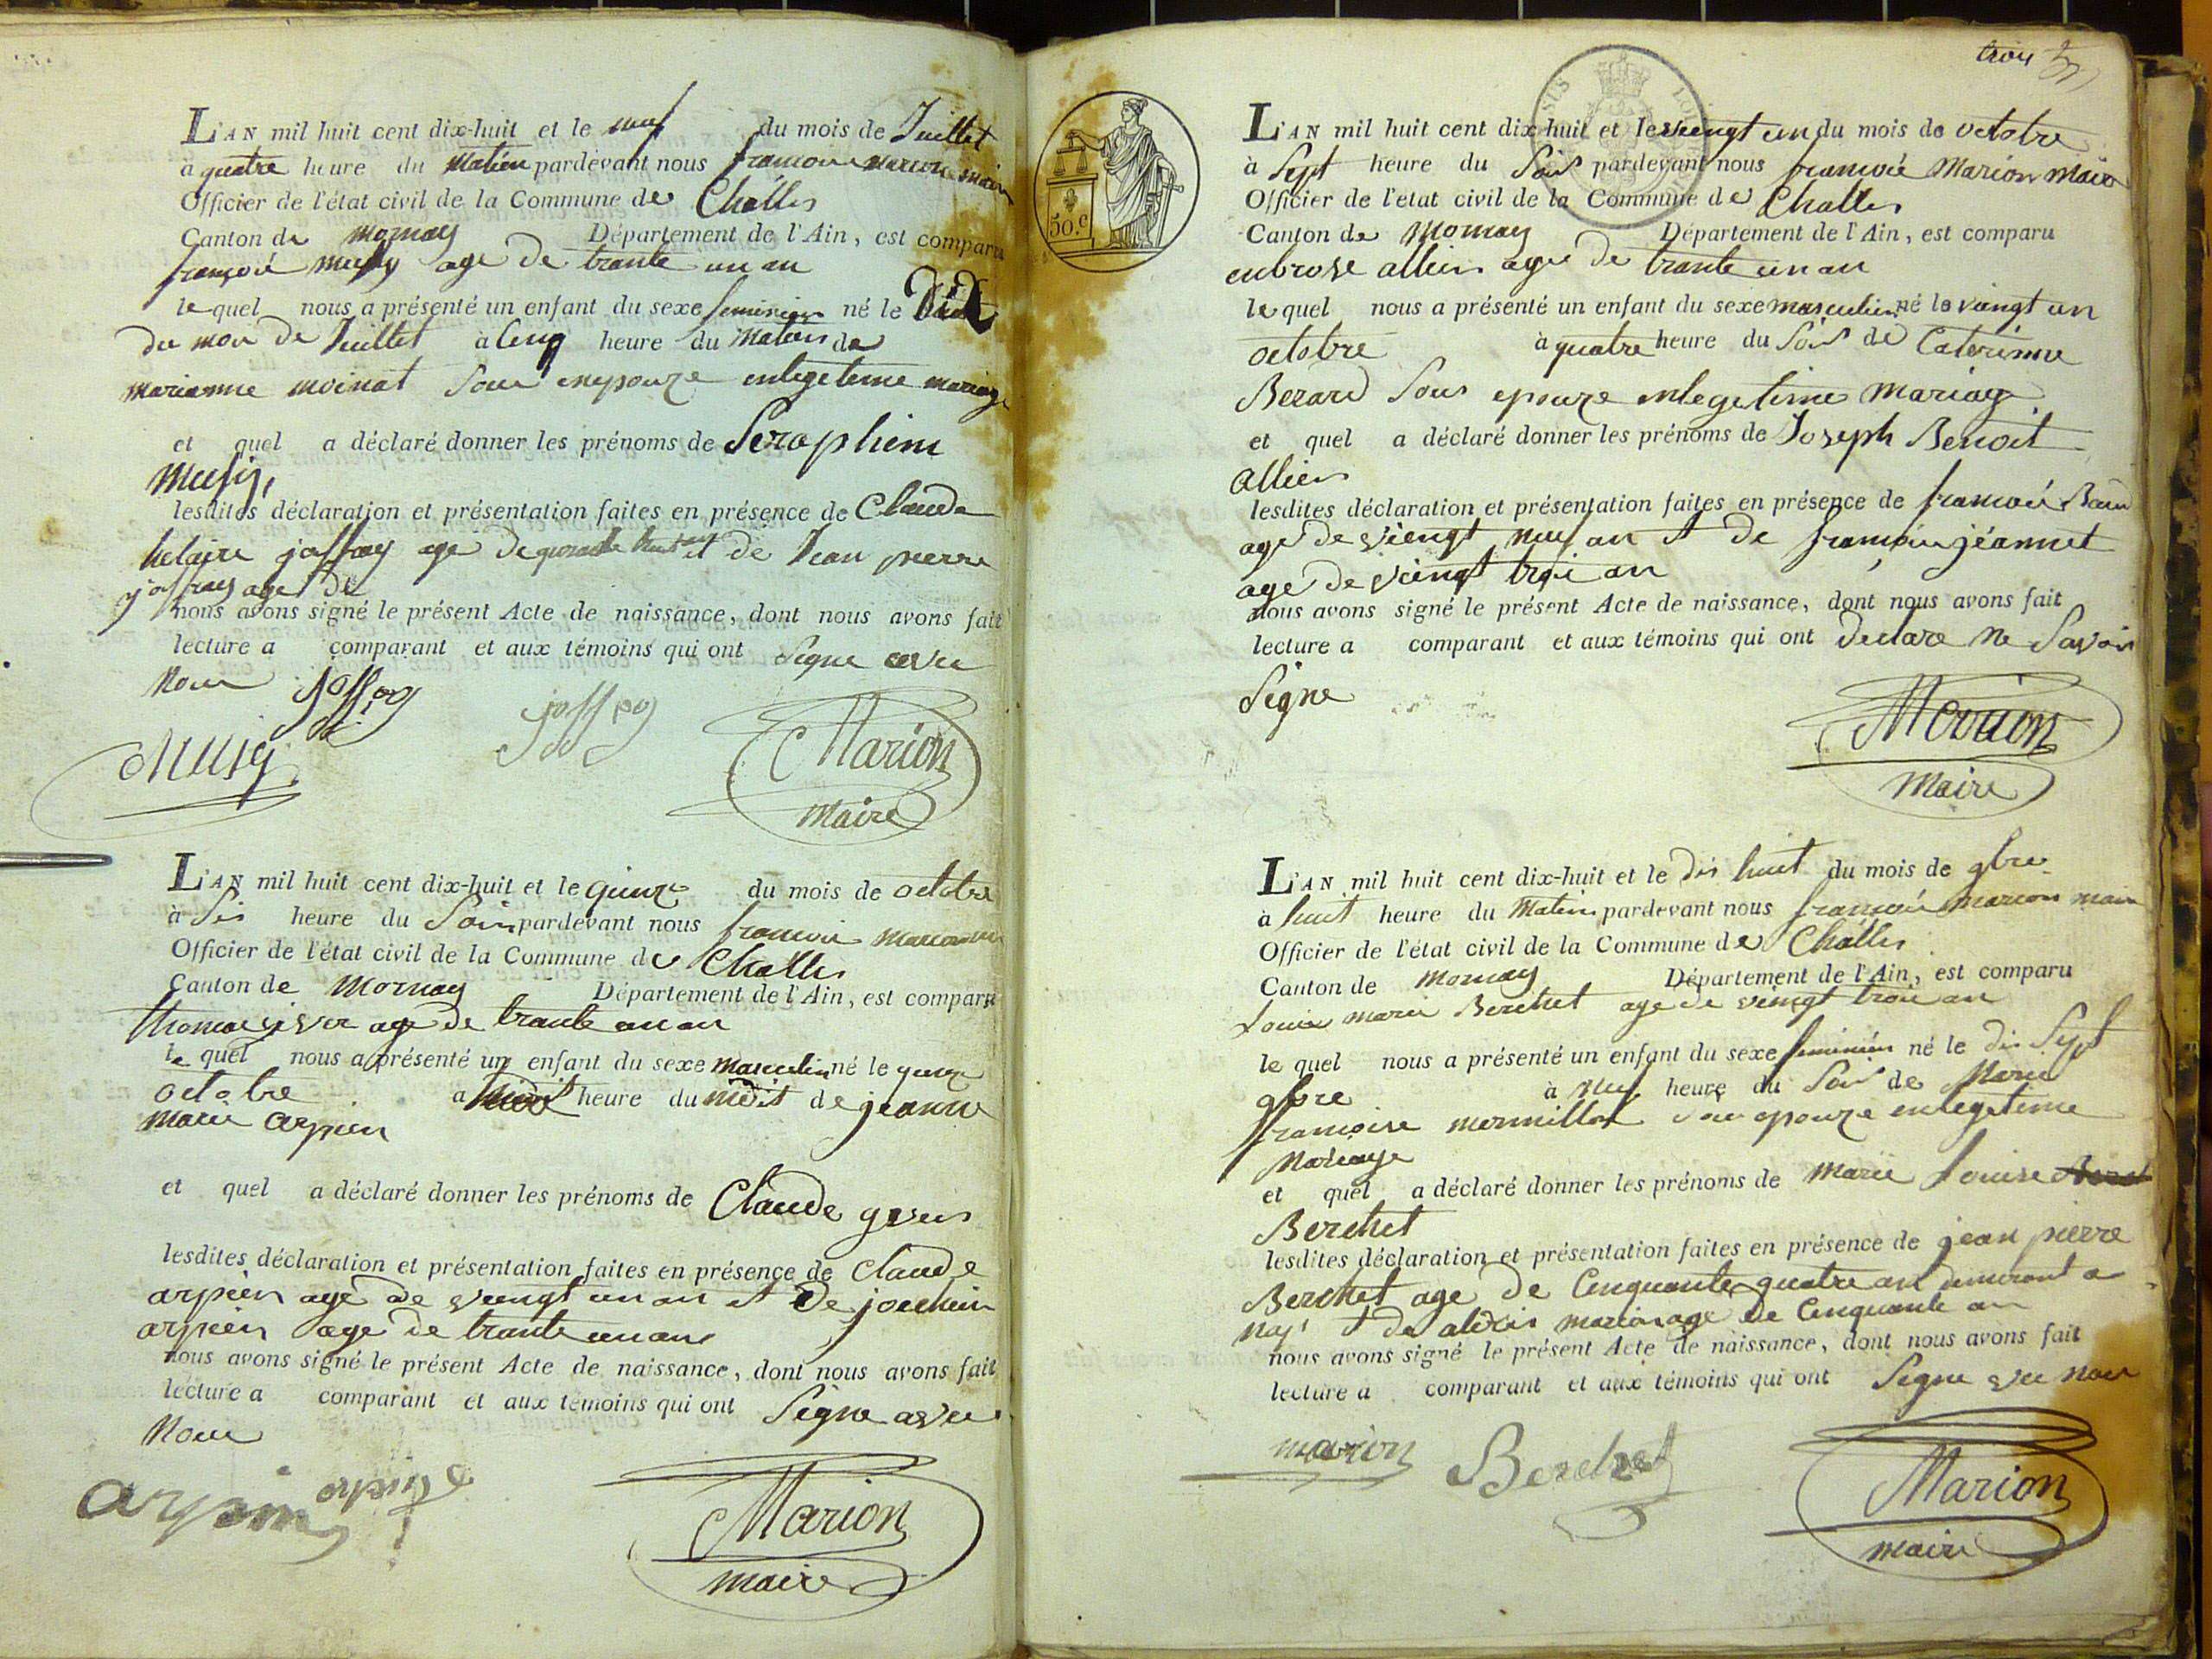 L'AN mil huit cent dix-huit et le neuf du mois de Juillet
a quatre heure du Matien pardevant nous francoie marion maire
Officier de l'état civil de la Commune de Challes
Canton de Mornay Département de l'Ain, est comparu
françoié musy age de trante un an
le quel nous a présenté un enfant du sexe feminien né le
du moi de Juillet à Cinq heure du Matien de
marianne moinat Son enepouze enlegeteme mariage
et quel a déclaré donner les prénoms de Seraphiene
Musy,
lesdites déclaration et présentation faites en présence de Claude
helaire joffray age de et de Jean pierre
joffray age de
nous avons signé le présent Acte de naissance, dont nous avons fait
lecture a comparant et aux témoins qui ont Segne avec
Nou joffray joffray
Musy Marion
Maire
L'AN mil huit cent dix-huit et le quinze du mois de octobre
à Sis heure du Soir pardevant nous francoie marion
Officier de l'état civil de la Commune de Challes
Canton de Mornay Département de l'Ain, est comparu
thomas age de trante un an
le quel nous a présenté un enfant du sexe masculin né le quinze
octobre a heure du midit de jeanne
Marie arpien
et quel a déclaré donner les prénoms de Claude
lesdites déclaration et présentation faites en présence de Claude
arpien age de viengt un an et de
arpien age de trante un an
nous avons signé le présent Acte de naissance, dont nous avons fait
lecture a comparant et aux témoins qui ont Segne avec
Nou
arpin
Marion
maire
trois
50.c
L'AN mil huit cent dix-huit et le viengt un du mois de octobre
à Sept heure du Soir pardevant nous francoié Marion maire
Officier de l'état civil de la Commune de Challes
Canton de Mornay Département de l'Ain, est comparu
enbrose allien age de trante un an
le quel nous a présenté un enfant du sexe masculien né le vaingt un
octobre à quatre heure du Soir de Caterinne
Berard Sous epouze enlegetime Mariag
et quel a déclaré donner les prénoms de Joseph Benoit
allien
lesdites déclaration et présentation faites en présence de francoié
age de viengt neuf an et de jéannet
age de viengt troi an
nous avons signé le présent Acte de naissance, dont nous avons fait
lecture a comparant et aux témoins qui ont declare ne Savoir
Segne
Marion
Maire
L'AN mil huit cent dix-huit et le dis huit du mois de 9bre
à huit heure du Matien pardevant nous francoie marion maire
Officier de l'état civil de la Commune de Challes
Canton de Mornay Département de l'Ain, est comparu
Louis marie Berchet age de viengt troi an
le quel nous a présenté un enfant du sexe feminien né le dis Sept
9bre à neuf heure du Soir de Marie
francoise mermillod Sou epouze enlegeteme
Mariage
et quel a déclaré donner les prénoms de Marie Louise
Berchet
lesdites déclaration et présentation faites en présence de jean pierre
Berchet age de Cenquante quatre an demeurant a
et de alexis marion age de Cenquante an
nous avons signé le présent Acte de naissance, dont nous avons fait
lecture a comparant et aux témoins qui ont Segne avec Nou
marion Berchet
Marion
maire